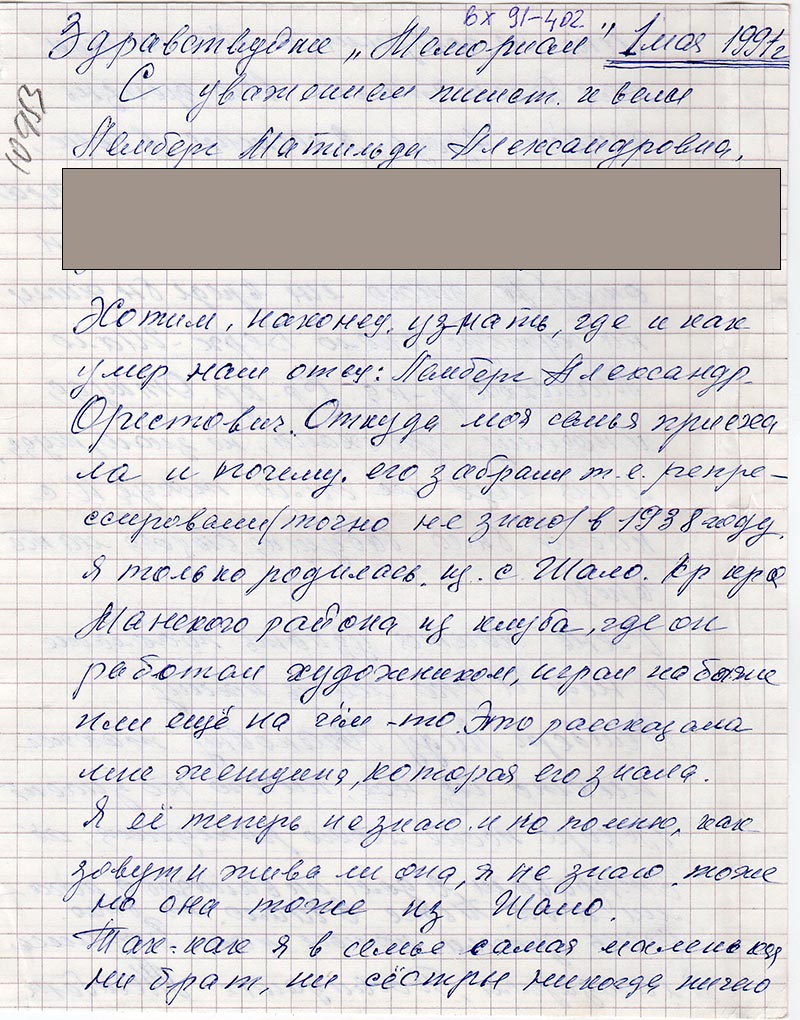 вх 91-402
Здравствуйте „Мемориал" 1 мая 1991 г
10953
С уважением пишет. к вам
Лемберг Матильда Александровна,
Хотим, наконец, узнать, где и как
умер наш отец: Лемберг Александр
Орестович. Откуда моя семья приеха
ла и почему. его забрали т.е. репре-
ссировали (точно не знаю) в 1938 году.
я только родилась. из. с. Шало. Кр кра
Манского района из клуба, где он
работал художником, играл на баяне
или ещё на чём-то. Это рассказала
мне женщина, которая его знала.
Я её теперь не знаю. и не помню, как
зовут и жива ли она, я не знаю. може
но она тоже из Шало.
Так-как я в семье самая маленькая
ни брат, ни сёстры никогда ничего